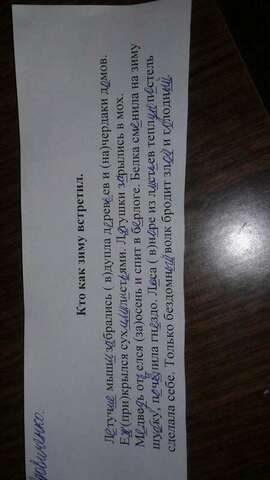 Кто как зиму встретил.
Летучие мыши забрались ( в)дупла деревьев и (на)чердаки домов.
Еж(при)крылся сухими листьями. Лягушки зарылись в мох.
Медведь отъелся (за)осень и спит в берлоге. Белка сменила на зиму
шубку, починила гнездо. Лиса ( в)норе из листьев теплую постель
сделала себе. Только бездомный волк бродит злой и голодный.